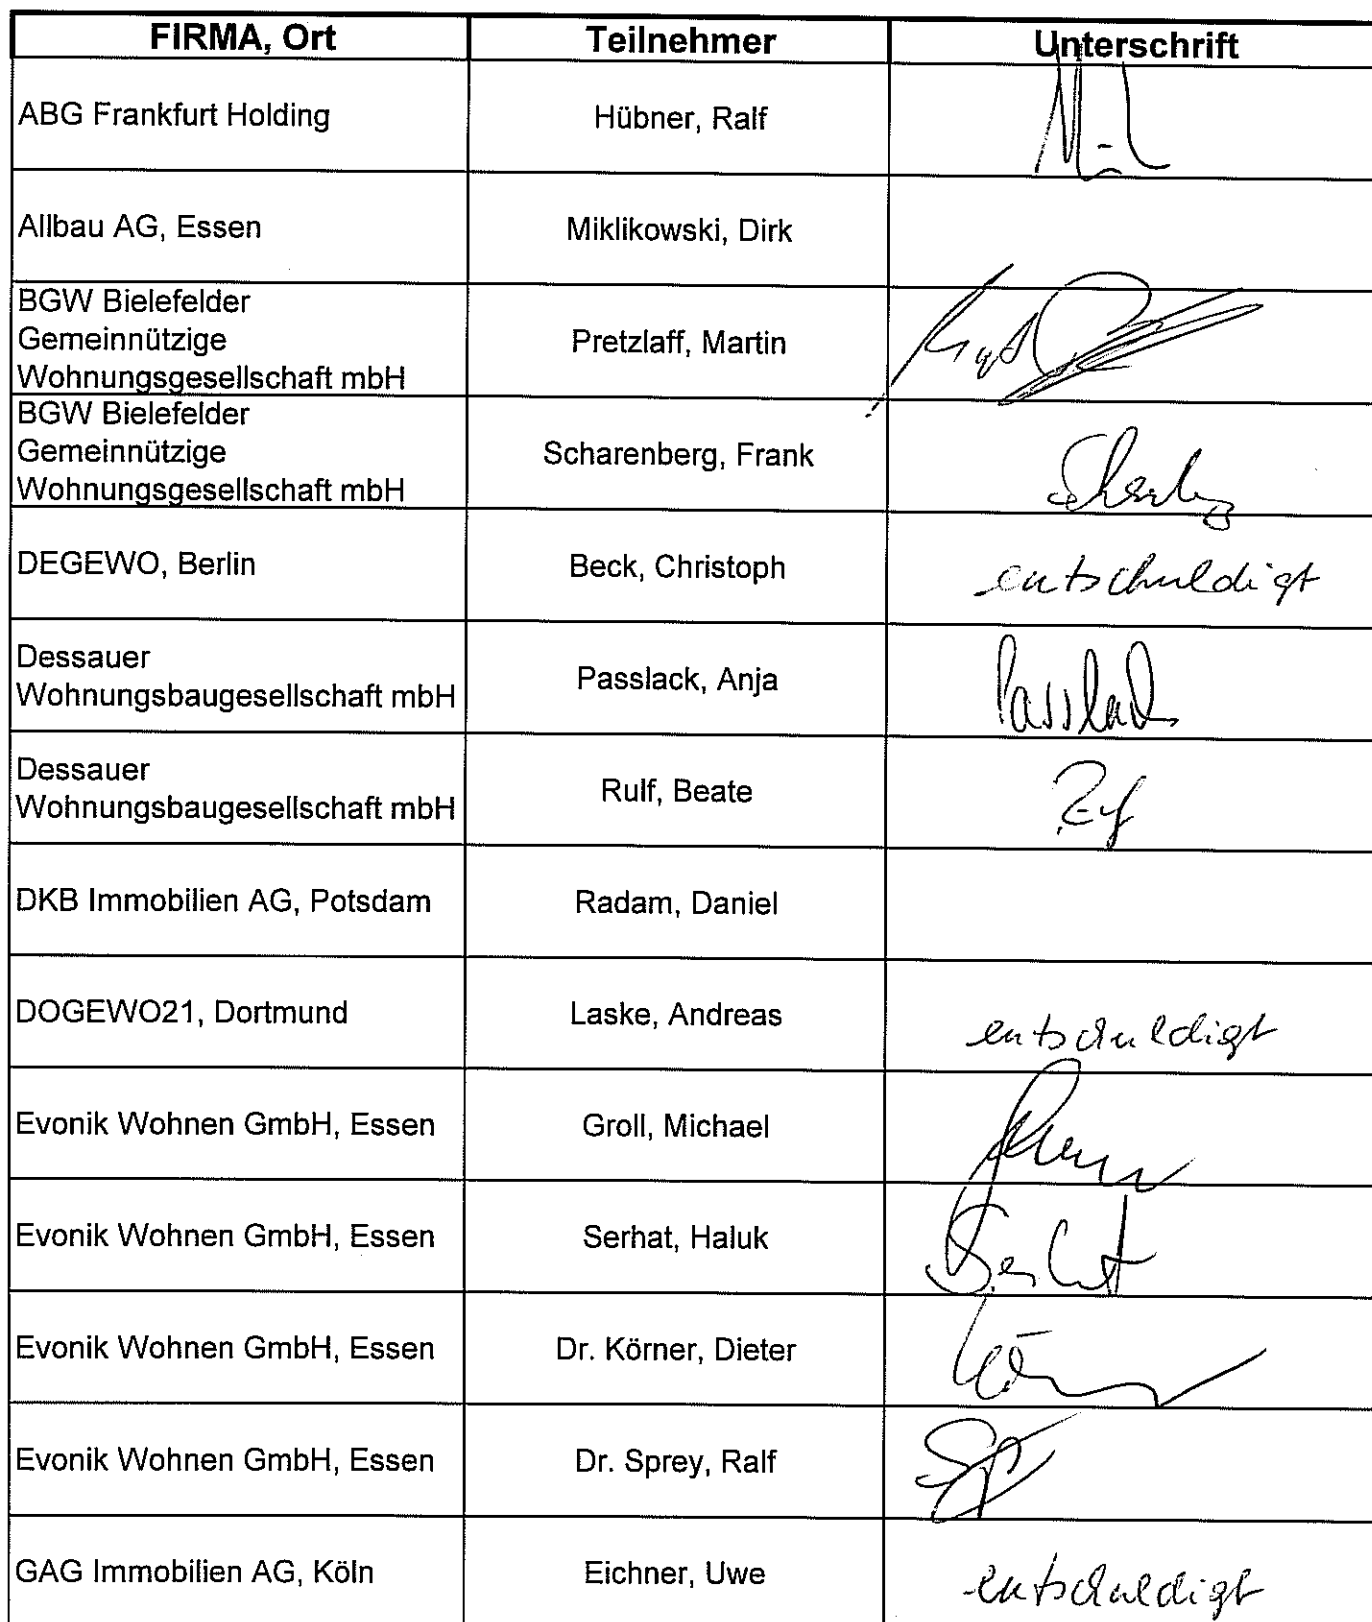 FIRMA, Ort Teilnehmer Unterschrift
ABG Frankfurt Holding Hübner, Ralf
Allbau AG, Essen Miklikowski, Dirk
BGW Bielefelder
Gemeinnützige
Wohnungsgesellschaft mbH Pretzlaff, Martin
BGW Bielefelder
Gemeinnützige
Wohnungsgesellschaft mbH Scharenberg, Frank
DEGEWO, Berlin Beck, Christoph entschuldigt
Dessauer
Wohnungsbaugesellschaft mbH Passlack, Anja Passlack
Dessauer
Wohnungsbaugesellschaft mbH Rulf, Beate
DKB Immobilien AG, Potsdam Radam, Daniel
DOGEWO21, Dortmund Laske, Andreas entschuldigt
Evonik Wohnen GmbH, Essen Groll, Michael
Evonik Wohnen GmbH, Essen Serhat, Haluk Serhat
Evonik Wohnen GmbH, Essen Dr. Körner, Dieter
Evonik Wohnen GmbH, Essen Dr. Sprey, Ralf
GAG Immobilien AG, Köln Eichner, Uwe entschuldigt